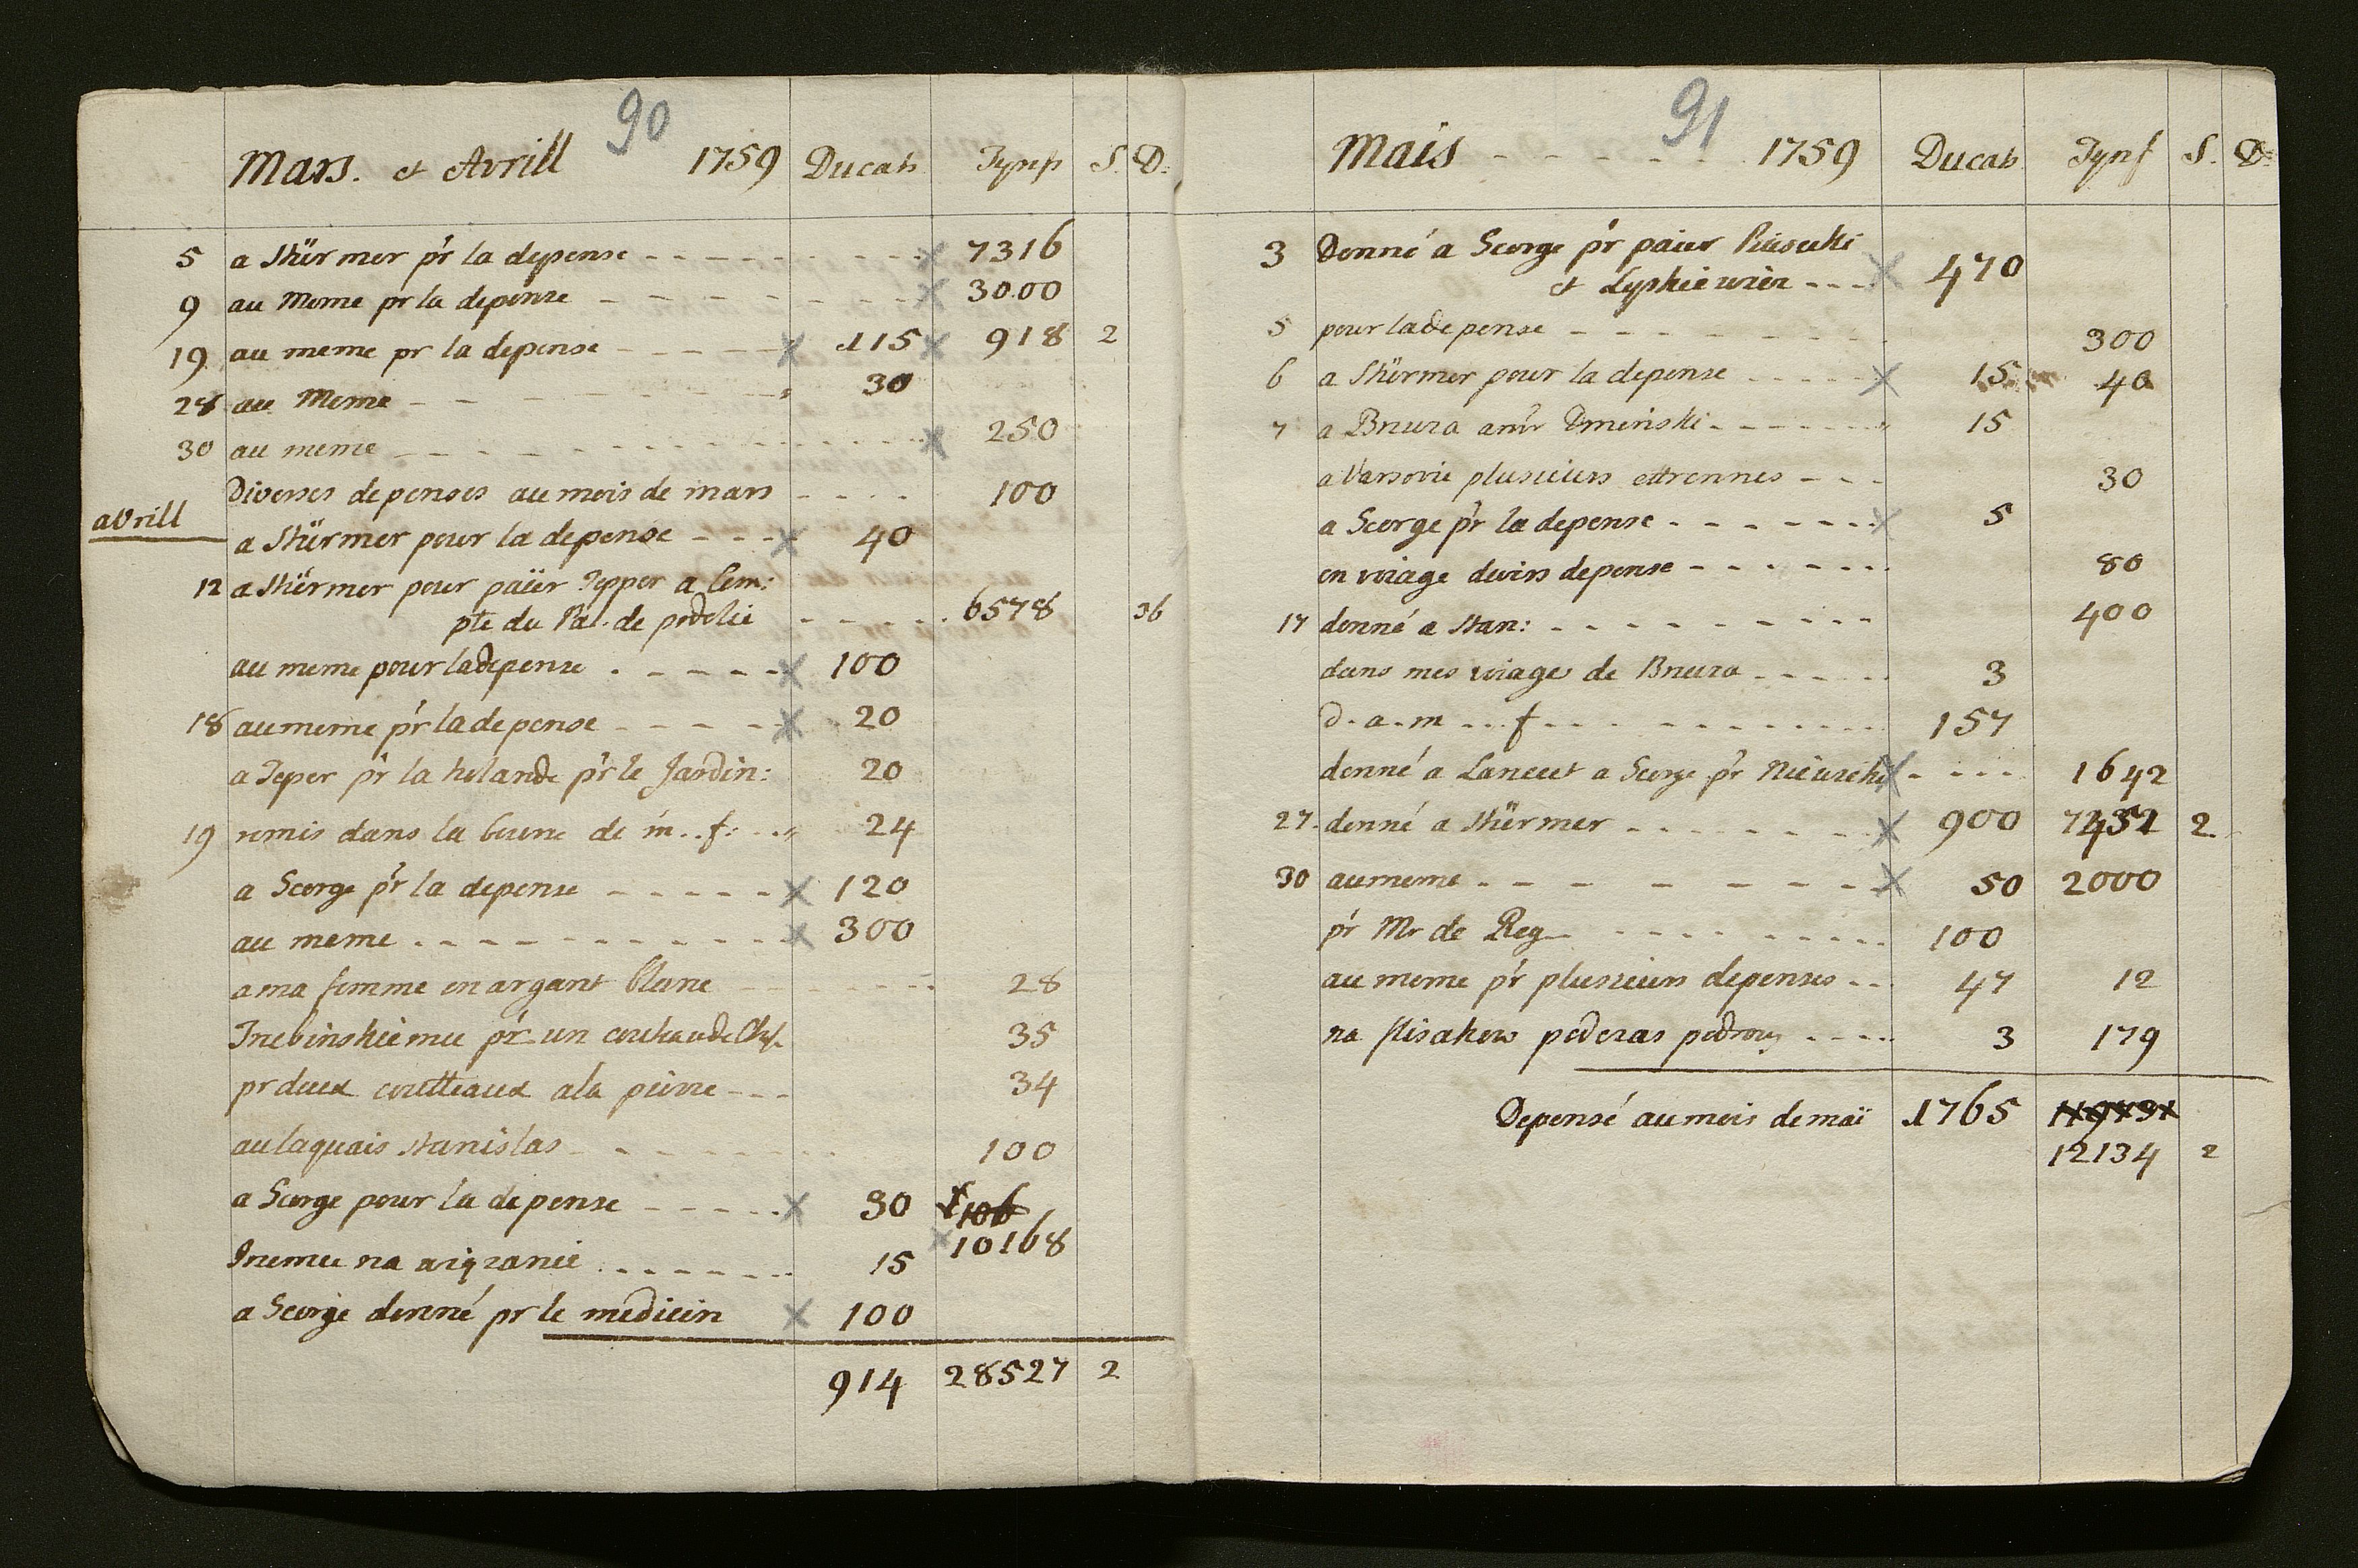 90
Mars. et Avrill 1759 Ducats Tynfs S. D:
5 a Stürmer pr la depense 7316
9 au Meme pr la depense 3000
19 au meme pr la depense 115 918 2
28 au Meme 30
30 au meme 250
Diverses depenses au mois de mars 100
avrill
a Stürmer pour la depense 40
12 a Stürmer pour païer Tepper a Com:
pte du Pal. de podolie 6578 36
au meme pour la depense 100
18 au meme pr la depense 20
a Teper pr la holande pr le Jardin: 20
19 remis dans la bourse de m..f: 24
a George pr la depense 120
au meme 300
a ma femme en argant blanc 28
pr un 35
pr deux coutteaux a la 34
au laquais Stanislas 100
a George pour la depense 30 106
10168
na 15
a George donné pr le medicin 100
914 28527 2
91
Mais 1759 Ducats Tynf S. D:
3 Donné a George pr païer
et 470
5 pour la depense 300
6 a Stürmer pour la depense 15 40
7 a Bnura 15
a Varsovie plusieurs ettrennes 30
a George pr la depense 5
en voiage divers depense 80
17 donné a Stan: 400
dans mes voiages de Bnura 3
d.a.m ...f 157
donné a a George pr 1642
27. donné a Stürmer 900 7452 2
30 au meme 50 2000
pr Mr de Reg 100
au meme pr plusieurs depenses 47 12
na flisakow podczas 3 179
Depensé au mois de maï 1765 11973 1
12134 2